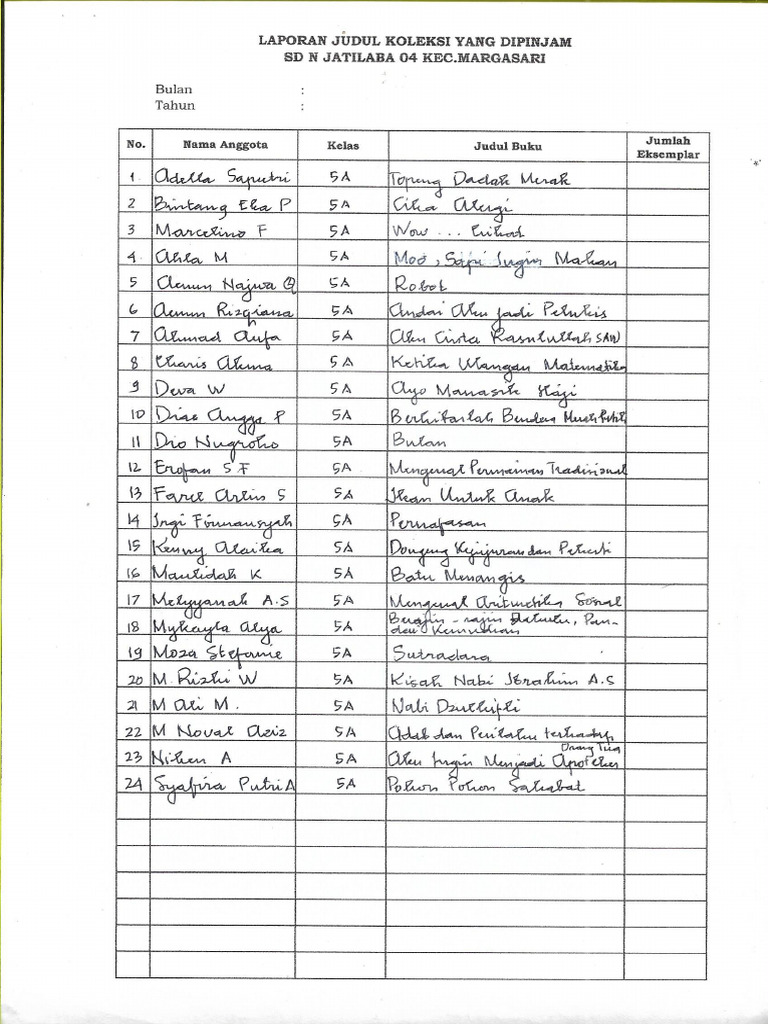 LAPORAN JUDUL KOLEKSI YANG DIPINJAM
SD N JATILABA 04 KEC.MARGASARI
Bulan :
Tahun :
No. Nama Anggota Kelas Judul Buku Jumlah Eksemplar
1 Adella Saputri 5A Topeng Dadak Merak
2 Bintang Eka P 5A Cika Alergi
3 Marcelino F 5A Wow...
4 M 5A Moo, Sapi Ingin Makan
5 Aenun Najwa Q 5A Robot
6 Aenun Rizqiana 5A Andai Aku jadi Pelukis
7 Ahmad Aufa 5A Aku Cinta Rasulullah SAW
8 Charis 5A Ketika Ulangan Matematika
9 Deva W 5A Ayo Manasik Haji
10 Angga P 5A Berkibarlah Bendera Merah Putih
11 Dio Nugroho 5A Bulan
12 Erofan S F 5A Mengenal Permainan Tradisional
13 Farel S 5A Ikan Untuk Anak
14 Firmansyah 5A Pernafasan
15 Kenny 5A Dongeng Kejujuran dan
16 Maulidah K 5A Batu Menangis
17 Melyyanah A.S 5A Mengenal Aritmetika Sosial
18 Mykayla Alya 5A Berajin - rajin Dahulu, Pan-
dai Kemudian
19 Moza Stefanie 5A Sutradara
20 M. Rizki W 5A Kisah Nabi Ibrahim A.S
21 M Ali M. 5A Nabi Dzulkifli
22 M Noval Aziz 5A Adab dan Perilaku terhadap
Orang Tua
23 Niken A 5A Aku Ingin Menjadi Apoteker
24 Syafira Putri A 5A Pohon Pohon Sahabat